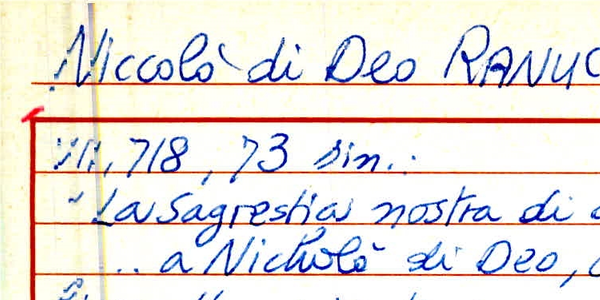 Niccolò di Deo RANUC
VII, 718, 73 sin.:
"La Sagrestia nostra di
... a Nicholò di Deo,